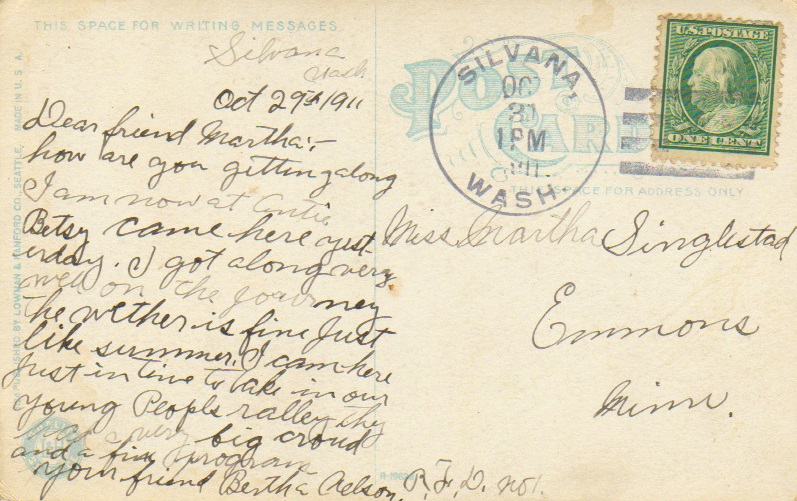 THIS SPACE FOR WRITING MESSAGES
Silvana
Wash
Oct 29th 1911
Dear friend Martha:-
how are you getting along
I am now at Antie
Betsy came here yest
erday. I got along very
well on the journey
the wether is fine Just
like summer. I cam here
Just in time to take in our
young Peoples ralley they
very big croud
and a fine program
your friend Bertha
PUBLISHED BY LOWMAN & HANFORD CO., SEATTLE. MADE IN U. S. A.
POST CARD
THIS SPACE FOR ADDRESS ONLY
SILVANA,
OCT
31
1 PM
WASH.
U.S. POSTAGE
ONE CENT
Miss Martha Singlestad
Emmons
Minn.
R.F.D. no 1.